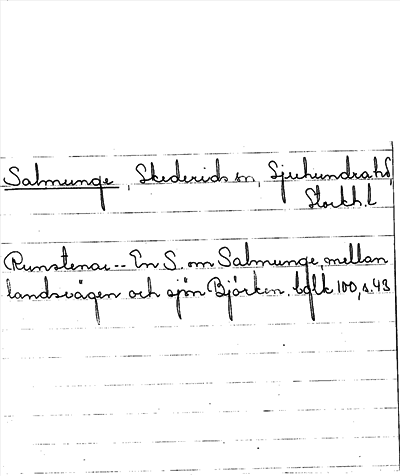 Salmunge, Skederids sn, Sjuhundrahd,
Stockh. l
Runstenar -- En S. om Salmunge, mellan
landsvägen och sjön Björken. bglk 100, s. 43